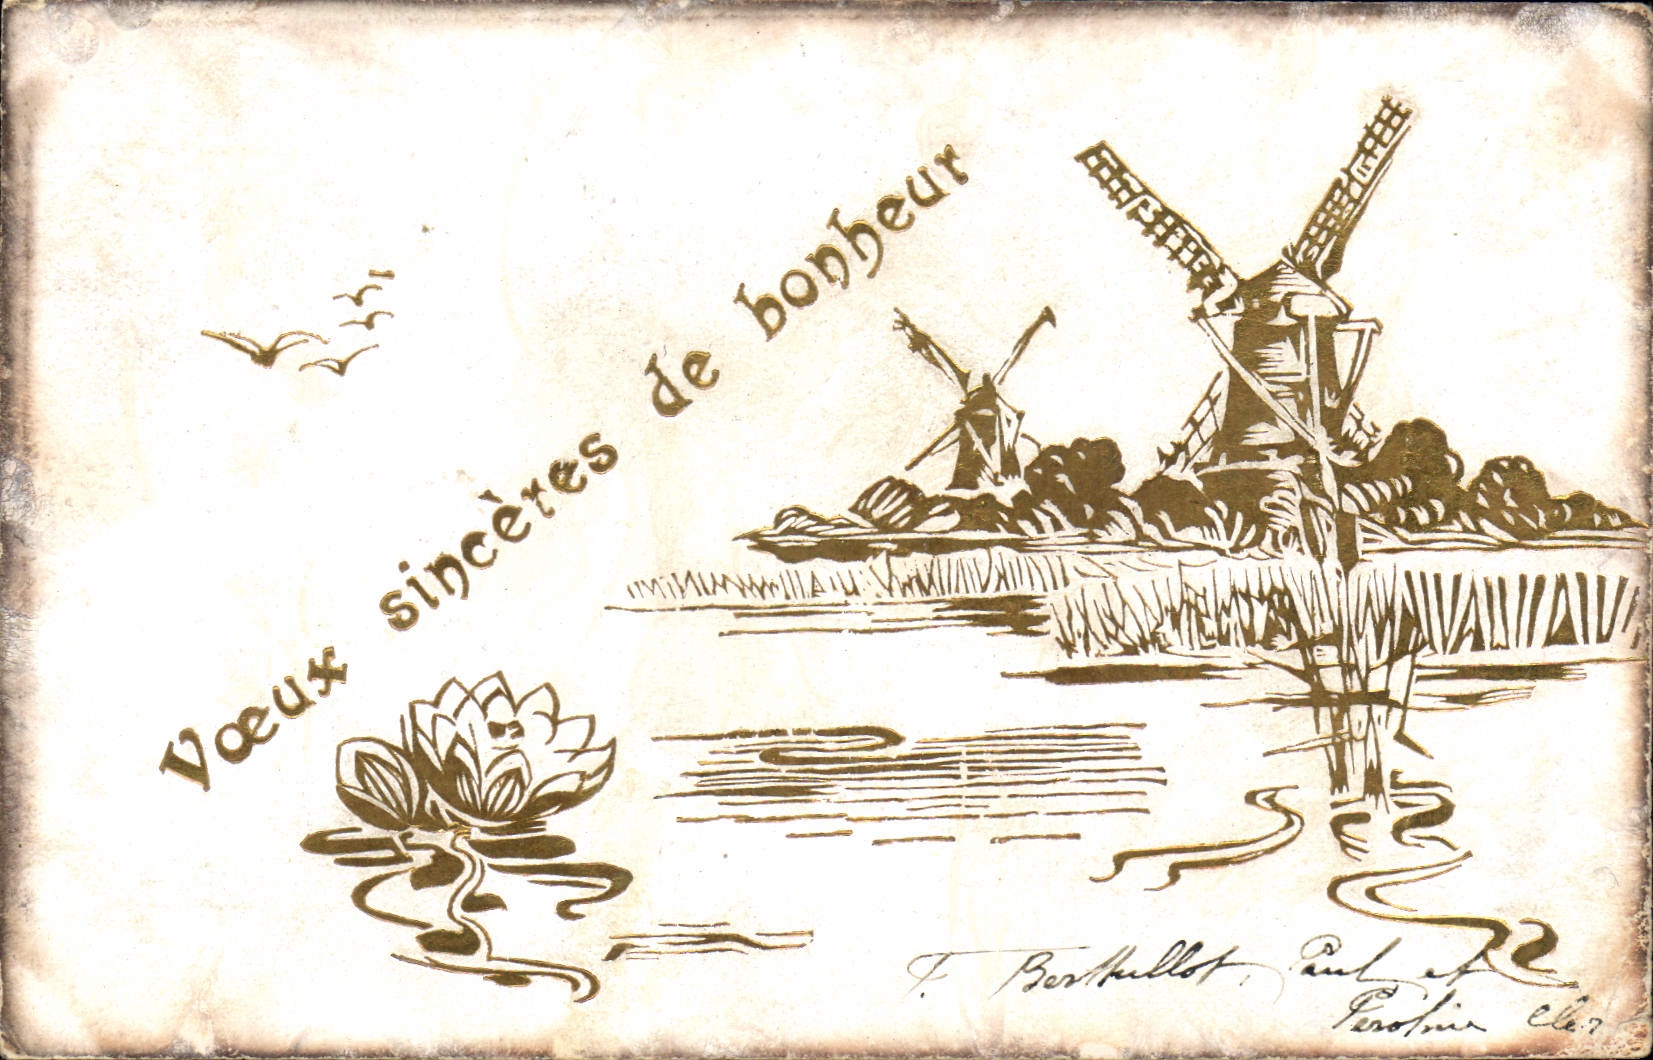 Vœux sincères de bonheur
F. Berthullot, Paul et